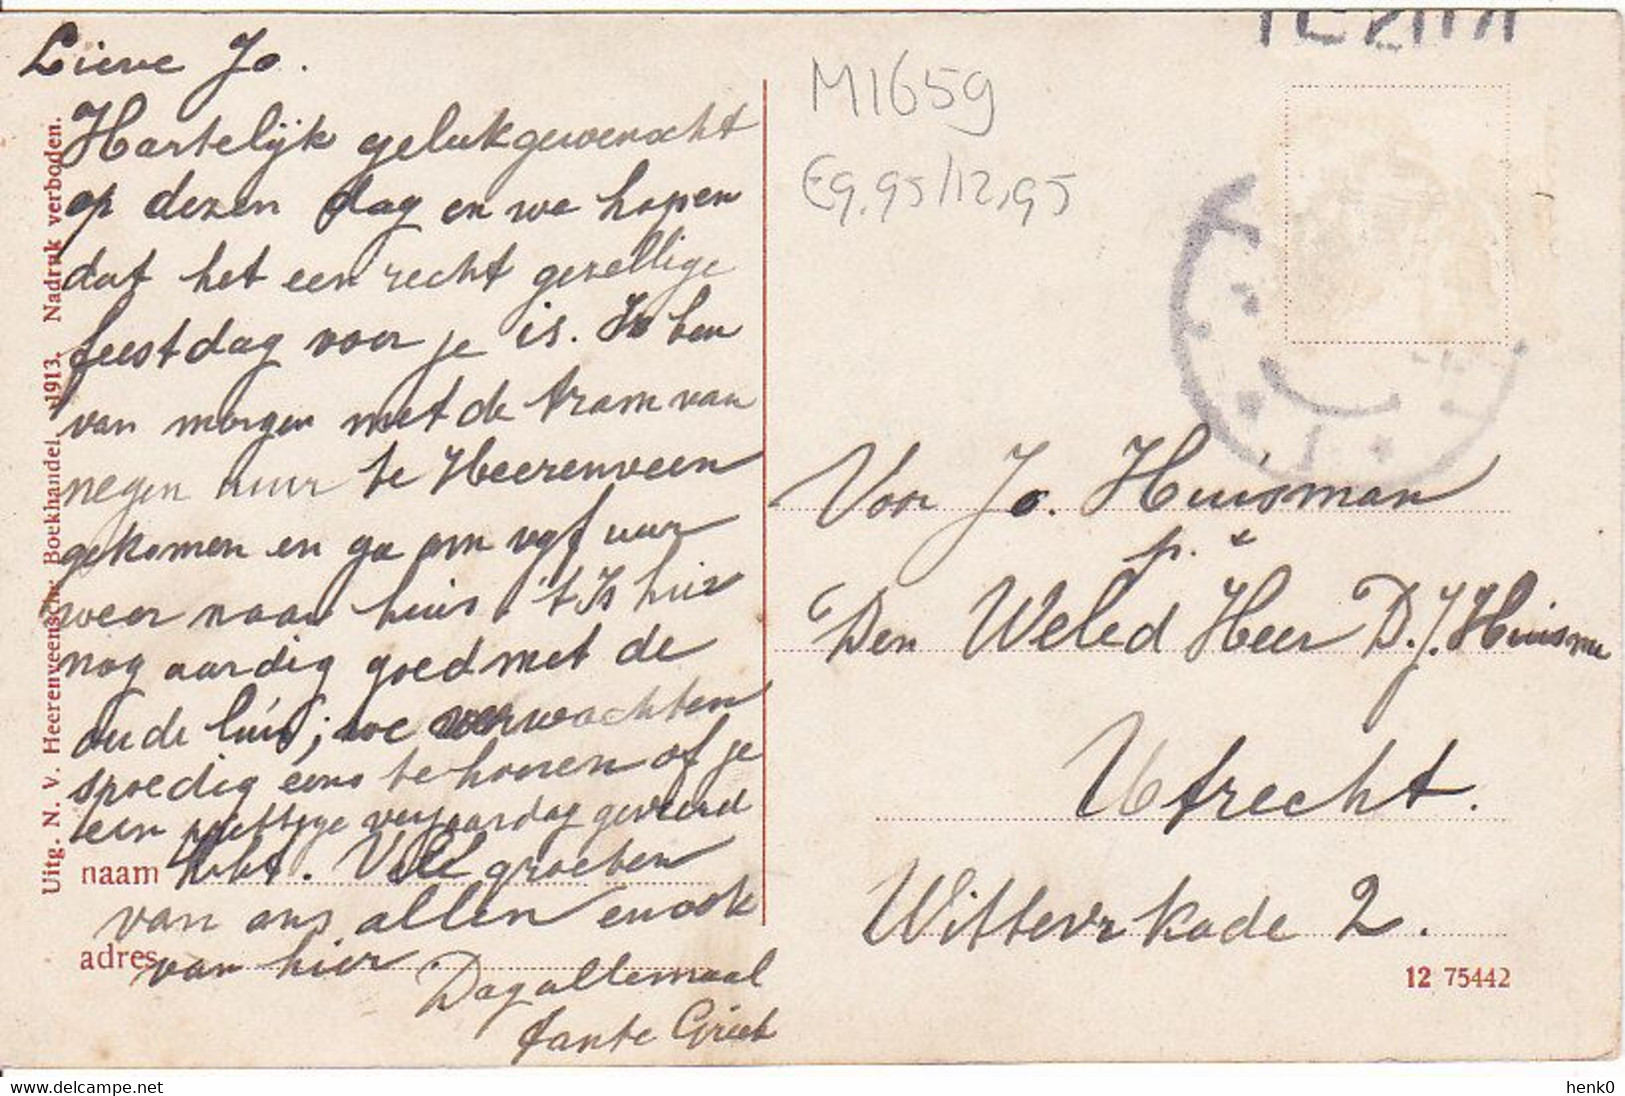 Lieve Jo.
Hartelijk gelukgewenscht
op dezen dag en we hopen
dat het een recht gezellige
feestdag voor je is. Ik ben
van morgen met de tram van
negen uur te Heerenveen
gekomen en ga om vijf uur
weer naar huis. 't Is hier
nog aardig goed met de
oude lui; we verwachten
spoedig eens te hooren of je
een prettige verjaardag gevierd
hebt. Vele groeten
van ons allen en ook
van hier Dag allemaal
Tante Griet
naam
adres
Uitg. N. V. Heerenveensche Boekhandel. 1913. Nadruk verboden.
M1659
€9,95/12,95
Voor Jo. Huisman
p. a
Den Weled Heer D.J. Huisma
Utrecht.
Wittevr kade 2.
12 75442
delcampe.net
henk0